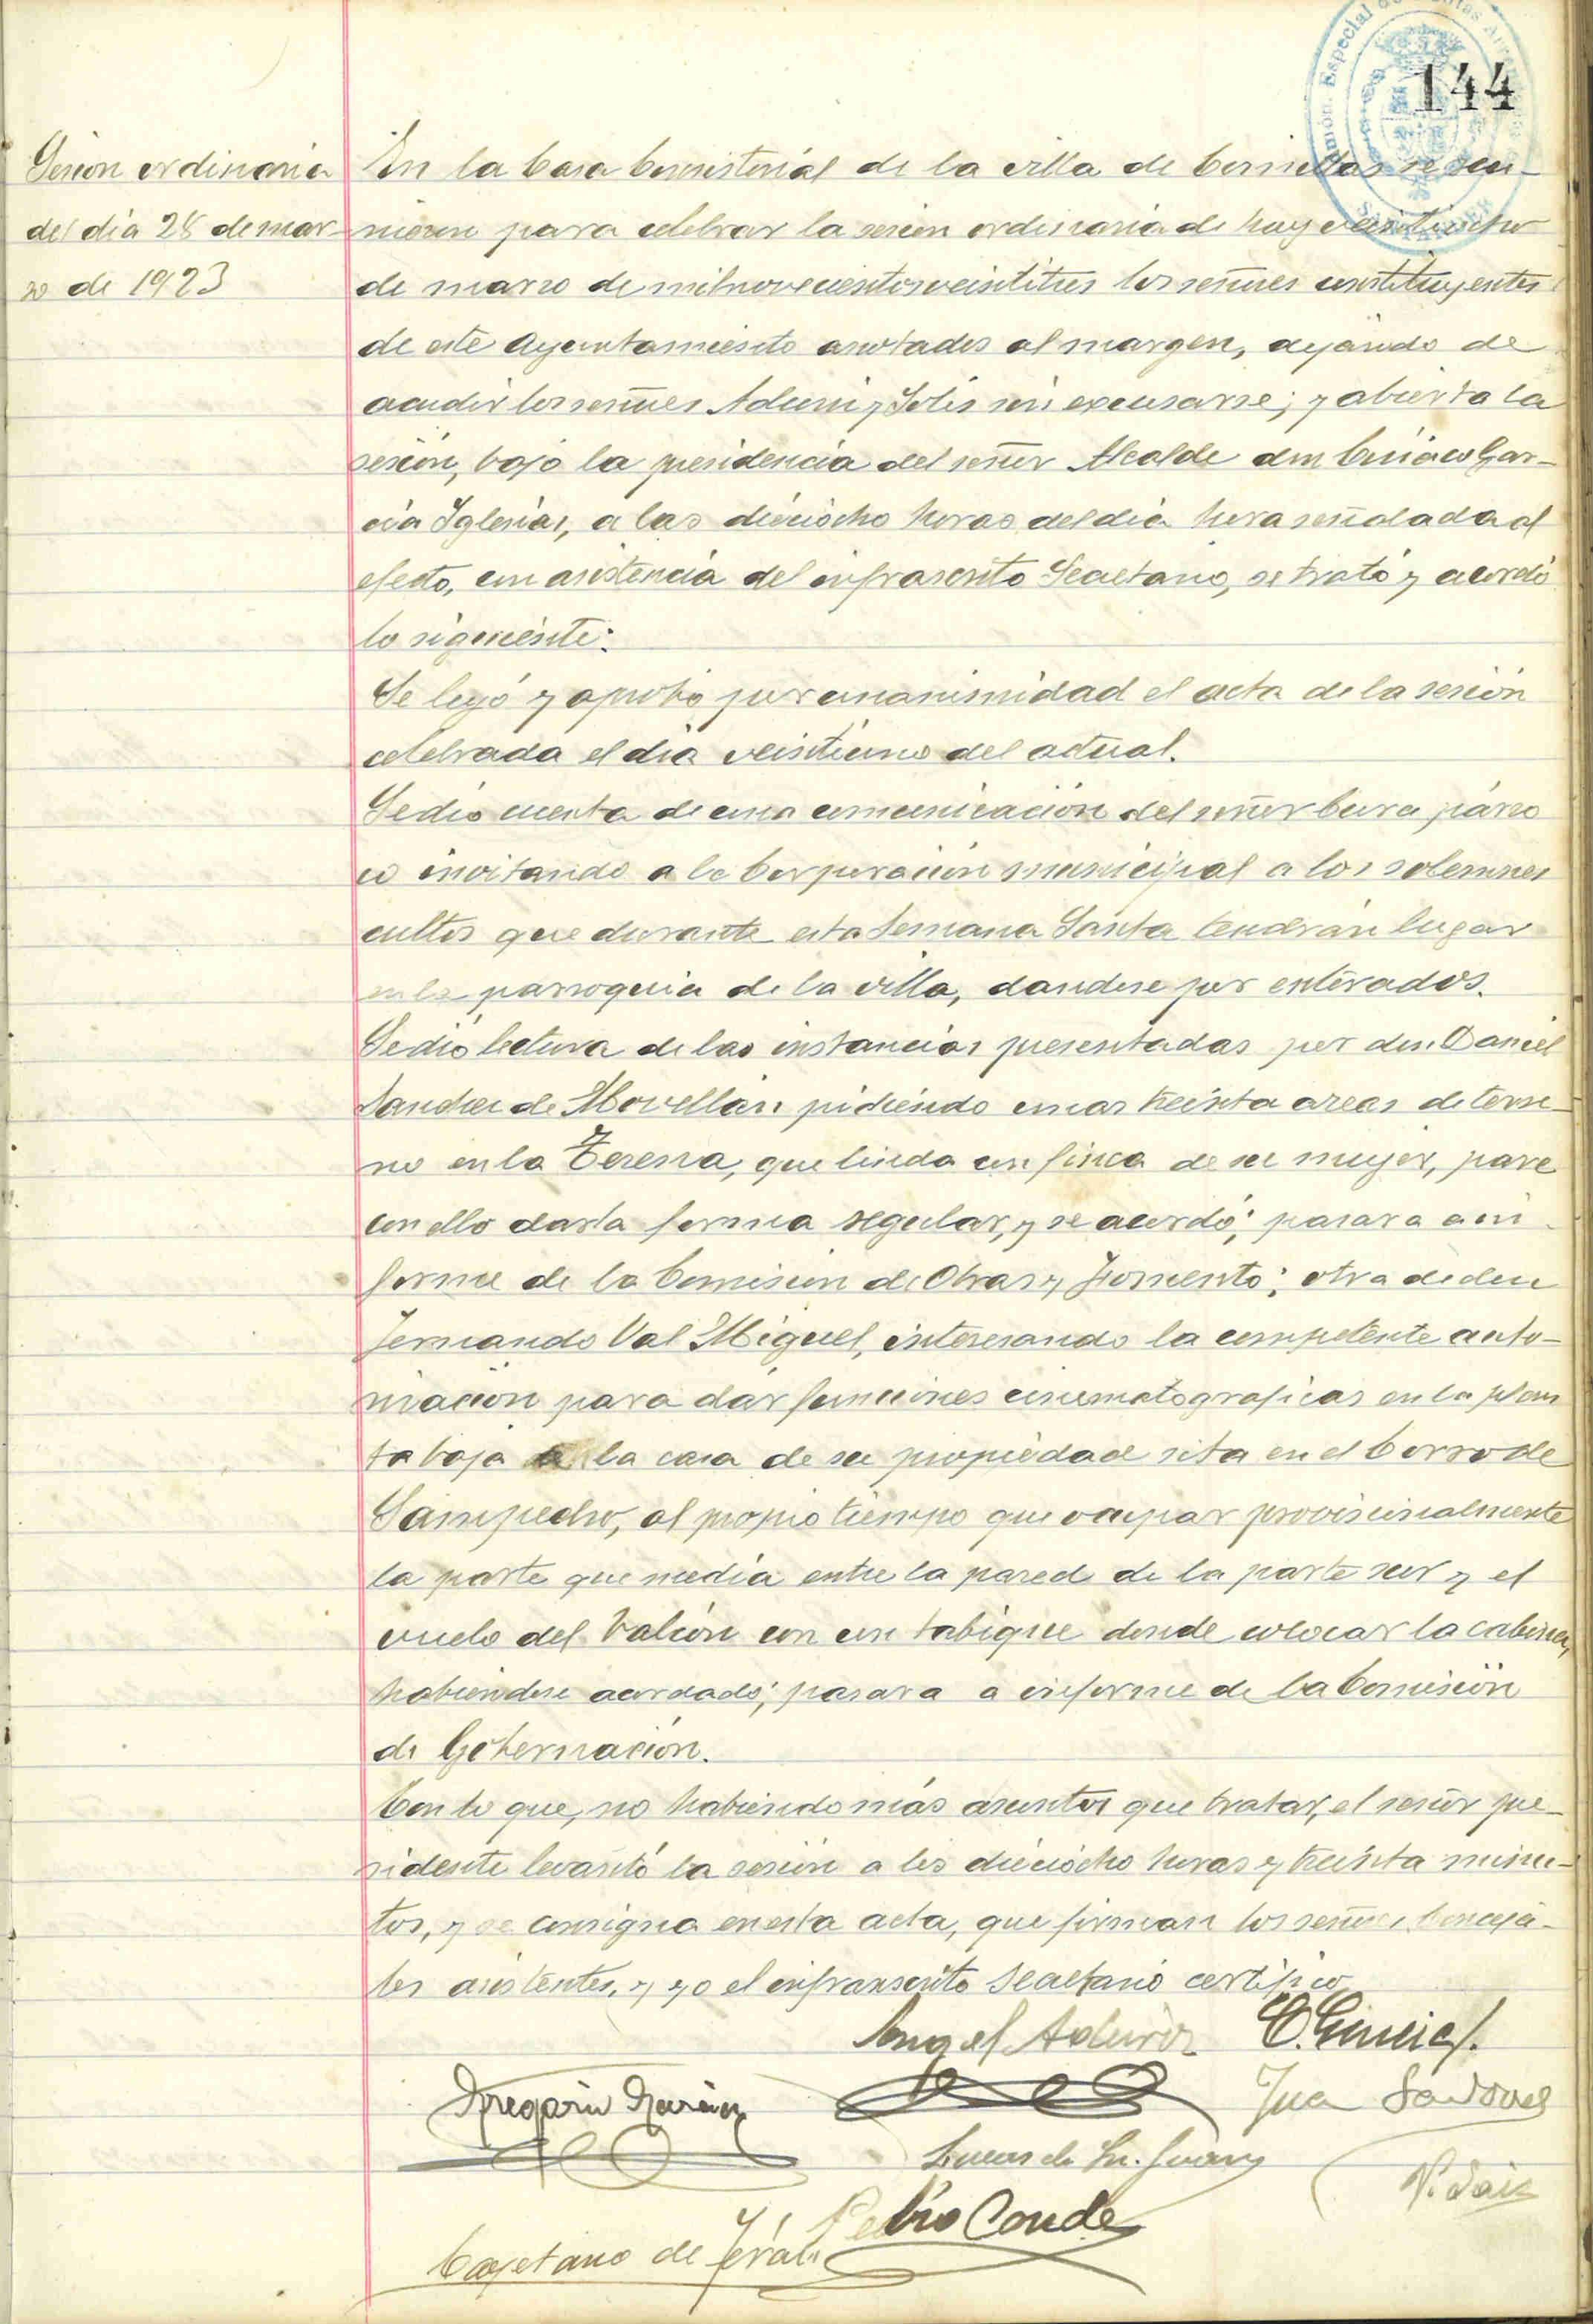 144
Sesion ordinaria
del dia 28 de mar-
zo de 1923
En la Casa Consistorial de la villa de Comillas se reu-
nieron para celebrar la sesión ordinaria de hoy veintiocho
de marzo de mil novecientos veintitres los señores constituyentes
de este Ayuntamiento anotados al margen, dejando de
acudir los señores Aduriz y Solis sin excusarse; y abierta la
sesión, bajo la presidencia del señor Alcalde don Ciriaco Gar-
cia Iglesias, a las dieciocho horas del dia hora señalada al
efecto, con asistencia del infrascrito Secretario, se trató y acordó
lo siguiente:
Se leyó y aprobó por unanimidad el acta de la sesión
celebrada el dia veintiuno del actual.
Se dio cuenta de una comunicación del señor Cura párro
co invitando a la Corporación municipal a los solemnes
cultos que durante esta Semana Santa tendrán lugar
en la parroquia de la villa, dandose por enterados.
Se dió lectura de las instancias presentadas por don Daniel
Sanchez de Movellán pidiendo unas treinta areas de terre-
no en la que linda con finca de su mujer, para
con ello darla forma regular, y se acordó; pasara a in-
forme de la Comisión de Obras y Fomento; otra de don
Fernando Val Miguel, interesando la competente auto-
rización para dar funciones cinematograficas en la plan
ta baja la casa de su propiedad sita en el Corro de
Sampedro, al propio tiempo que ocupar provisionalmente
la parte que media entre la pared de la parte sur y el
vuelo del balcón con un tabique donde colocar la cabina,
habiendose acordado; pasara a informe de la Comisión
de Gobernación.
Con lo que, no habiendo más asuntos que tratar, el señor pre-
sidente levantó la sesión a las dieciocho horas y treinta minu-
tos, y se consigna en esta acta, que firman los señores Conceja-
les asistentes, y yo el infranscrito Secretario certifico
Angel Aduriz C. Garcia
Gregorio Juan Sandoval
Lucas de
Pedro Conde
Cayetano de